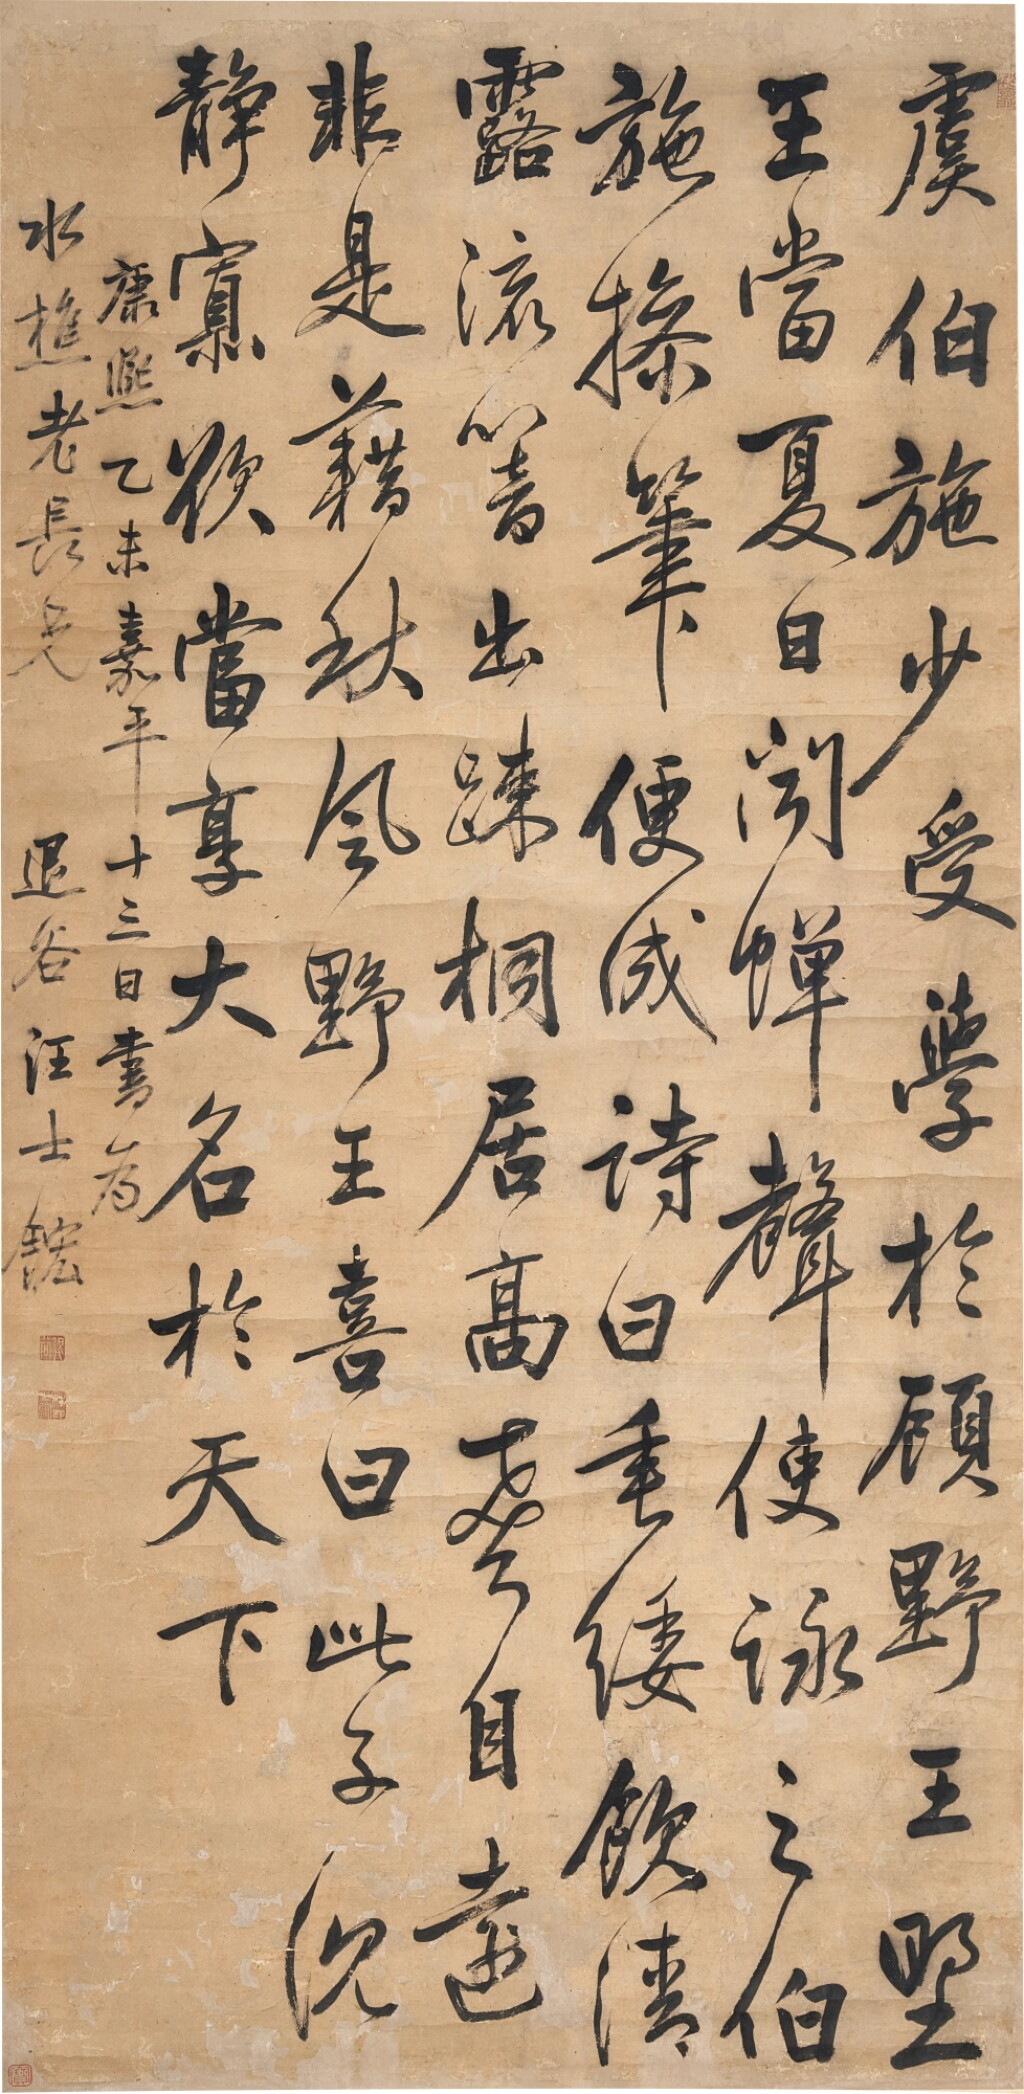 虞伯施少受學於顧野王野
王當夏日聞蟬聲使詠之伯
施搽筆便成詩曰垂緌飲清
露流響出踈桐居高聲自遠
非是藉秋風野王喜曰此子沉
靜寡欲當享大名於天下
康熙乙未嘉平十三日書為
水樵老長兄 退谷汪士鋐